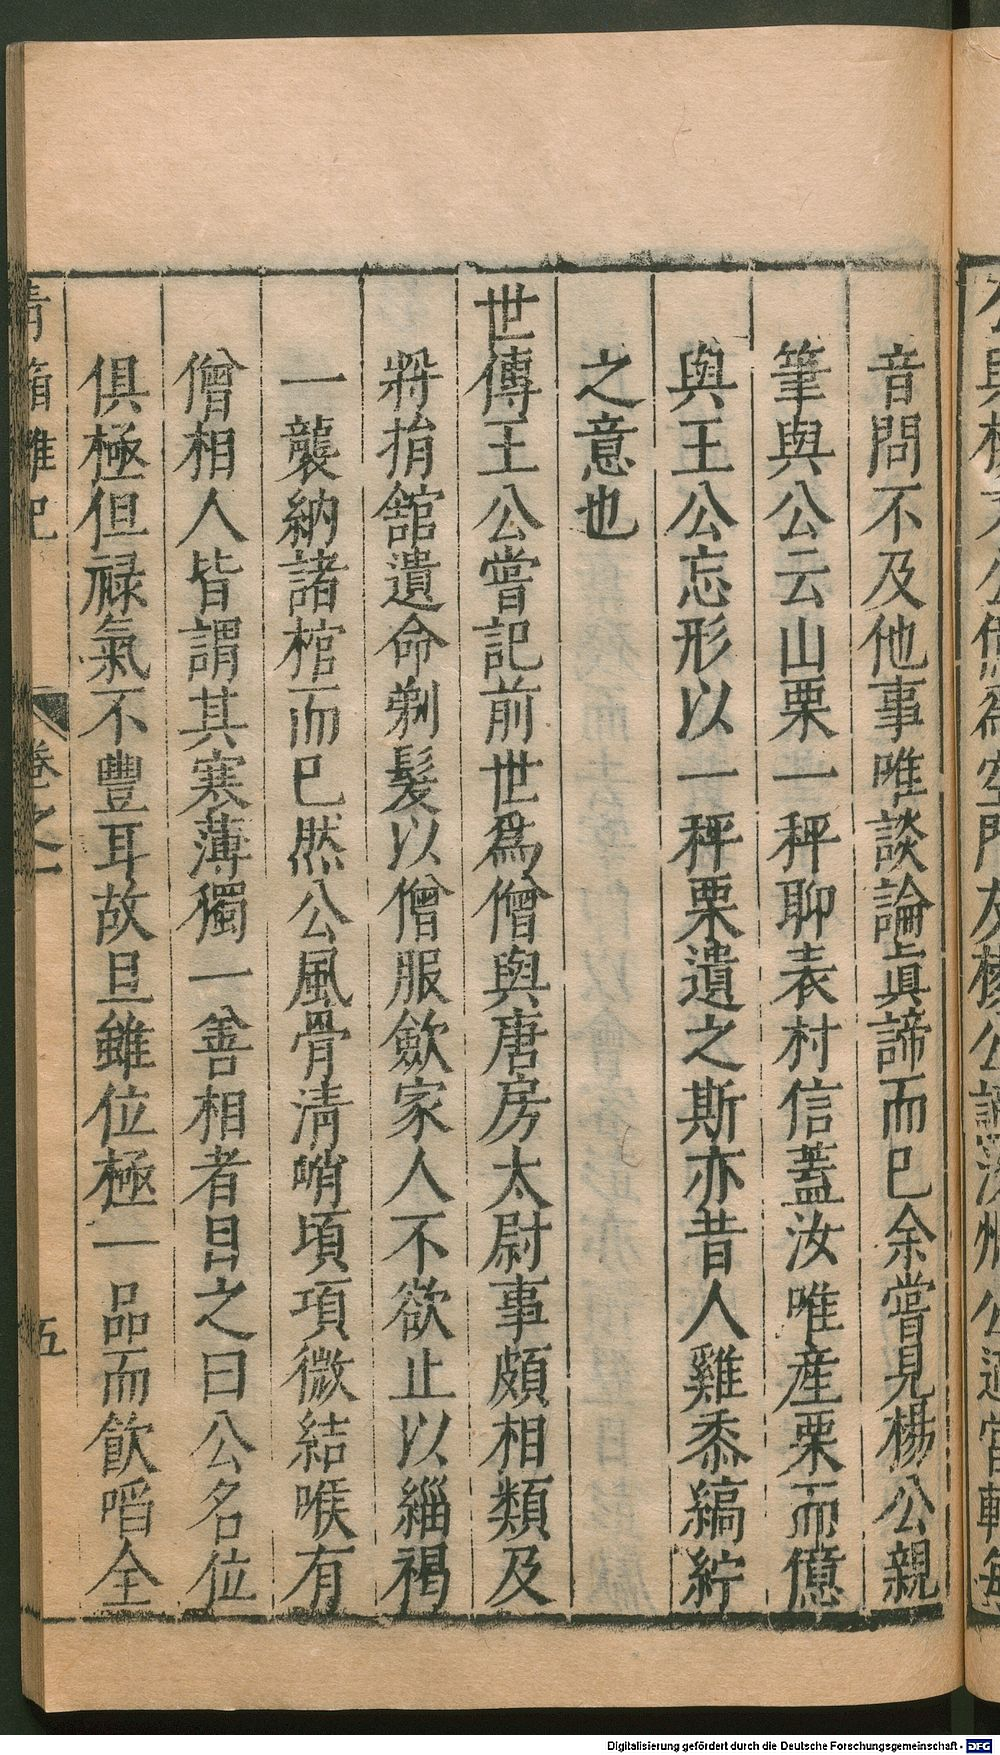 音問不及他事唯談論眞諦而已余嘗見楊公親
筆與公云山栗一秤聊表村信蓋汝唯産栗而億
與王公忘形以一秤栗遺之斯亦昔人雞黍縞紵
之意也
世傳王公嘗記前世爲僧與唐房太尉事頗相類及
將捐舘遺命剃髮以僧服歛家人不欲止以緇褐
一襲納諸棺而已然公風骨清峭頃項微結喉有
僧相人皆謂其寒薄獨一善相者目之曰公名位
俱極但禄氣不豐耳故旦雖位極一品而飲啗全
青箱雜記
卷之一
五
Digitalisierung gefördert durch die Deutsche Forschungsgemeinschaft - DFG